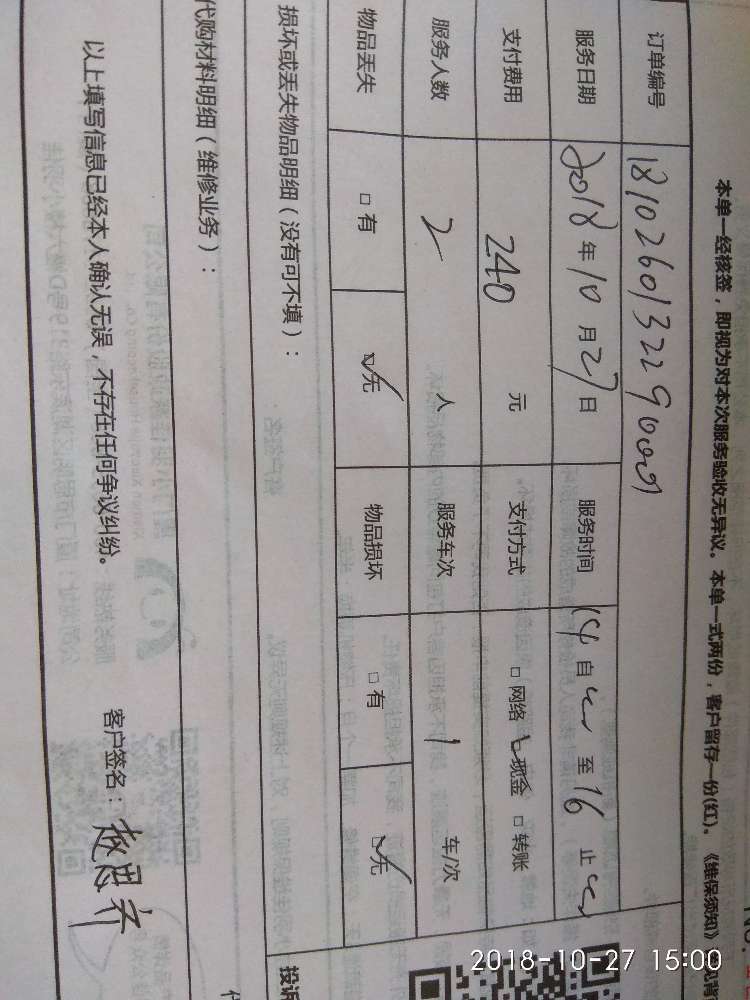 本单一经核签，即视为对本次服务验收无异议。本单一式两份，客户留存一份(红)。《维保须知》
订单编号 181026013229000
服务日期 2018 年 10 月 27 日 服务时间 14 自 至 16 止
支付费用 240 元 支付方式 □ 网络 现金 □ 转账
服务人数 2 人 服务车次 1 车/次
物品丢失 □ 有 无 物品损坏 □ 有 □ 无
损坏或丢失物品明细（没有可不填）：
代购材料明细（维修业务）：
以上填写信息已经本人确认无误，不存在任何争议纠纷。 客户签名：
投诉
2018-10-27 15:00